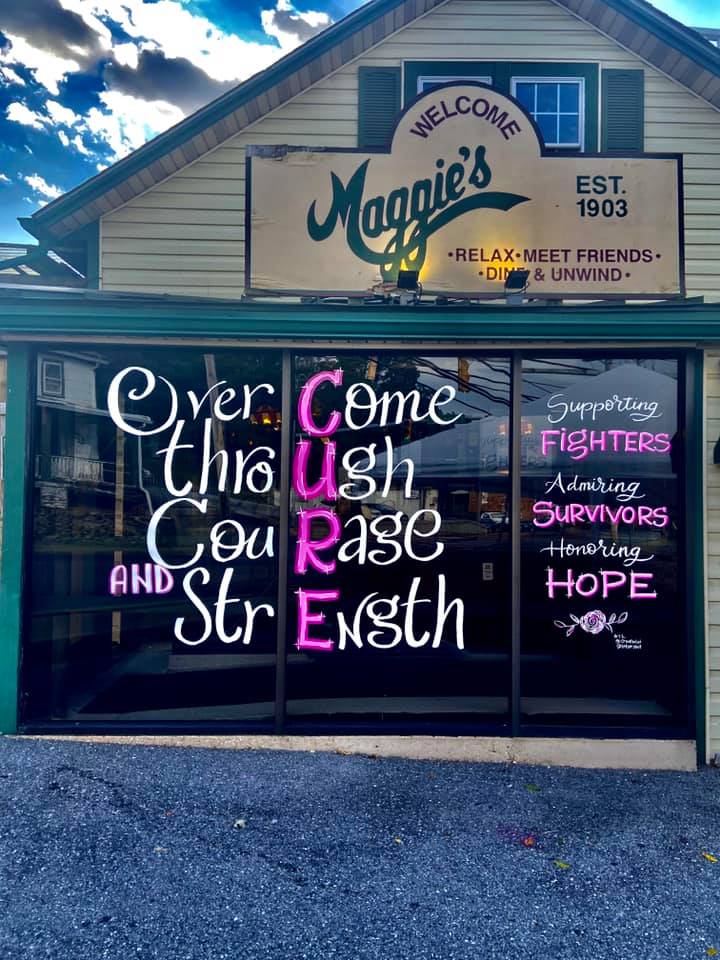 WELCOME
Maggie's
EST.
1903
•RELAX•MEET FRIENDS•
•DINE & UNWIND•
OverCome
throUgh
CouRage
AND StrEngth
Supporting
FIGHTERS
Admiring
SURVIVORS
Honoring
HOPE